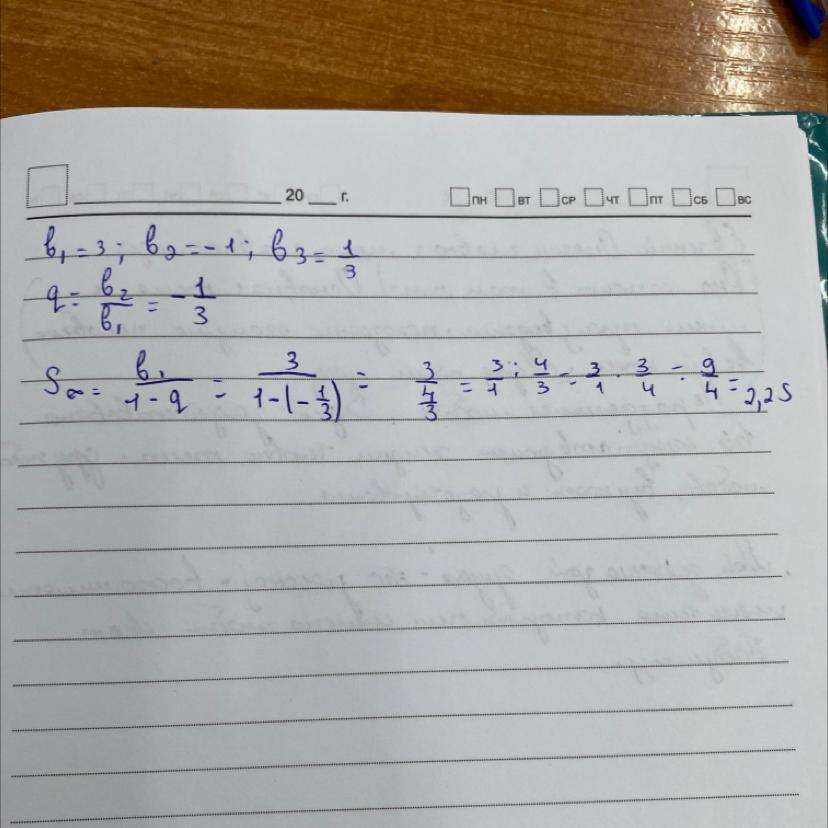 20 г. ПН ВТ СР ЧТ ПТ СБ ВС
b₁ = 3; b₂ = -1; b₃ = 1/3
q = b₂/b₁ = -1/3
S∞ = b₁/(1-q) = 3/(1-(-1/3)) = 3/(4/3) = 3/1 : 4/3 = 3/1 · 3/4 = 9/4 = 2,25